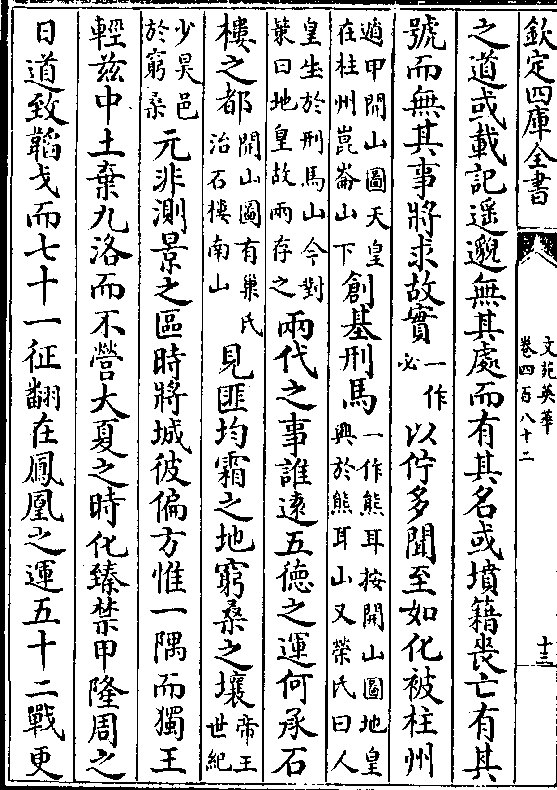 欽定四庫全書
文苑英華
卷四百八十二
十三
之道或載記遥邈無其處而有其名或墳籍喪亡有其
號而無其事將求故實一作必以佇多聞至如化被柱州
遁甲開山圖天皇在柱州崑崙山下創基刑馬一作熊耳按開山圖地皇興於熊耳山又榮氏曰人
皇生於刑馬山今對策曰地皇故兩存之兩代之事誰逺五德之運何承石
樓之都開山圖有巢氏治石樓南山見匪均霜之地窮桑之壤帝王世紀
少昊邑於窮桑元非測景之區時將城彼偏方惟一隅而獨王
輕兹中土棄九洛而不營大夏之時化臻禁甲隆周之
日道致韜戈而七十一征翻在鳳凰之運五十二戰更